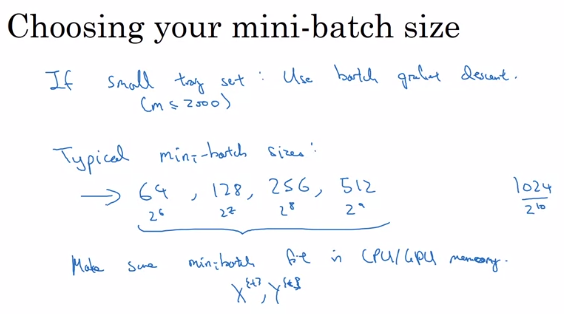 Choosing your mini-batch size
If small tray set : Use batch gradient descent.
(m ≤ 2000)
Typical mini-batch sizes:
→ 64 , 128, 256, 512
2⁶ 2⁷ 2⁸ 2⁹
1024
2¹⁰
Make sure minibatch fit in CPU/GPU memory.
X^{t}, Y^{t}